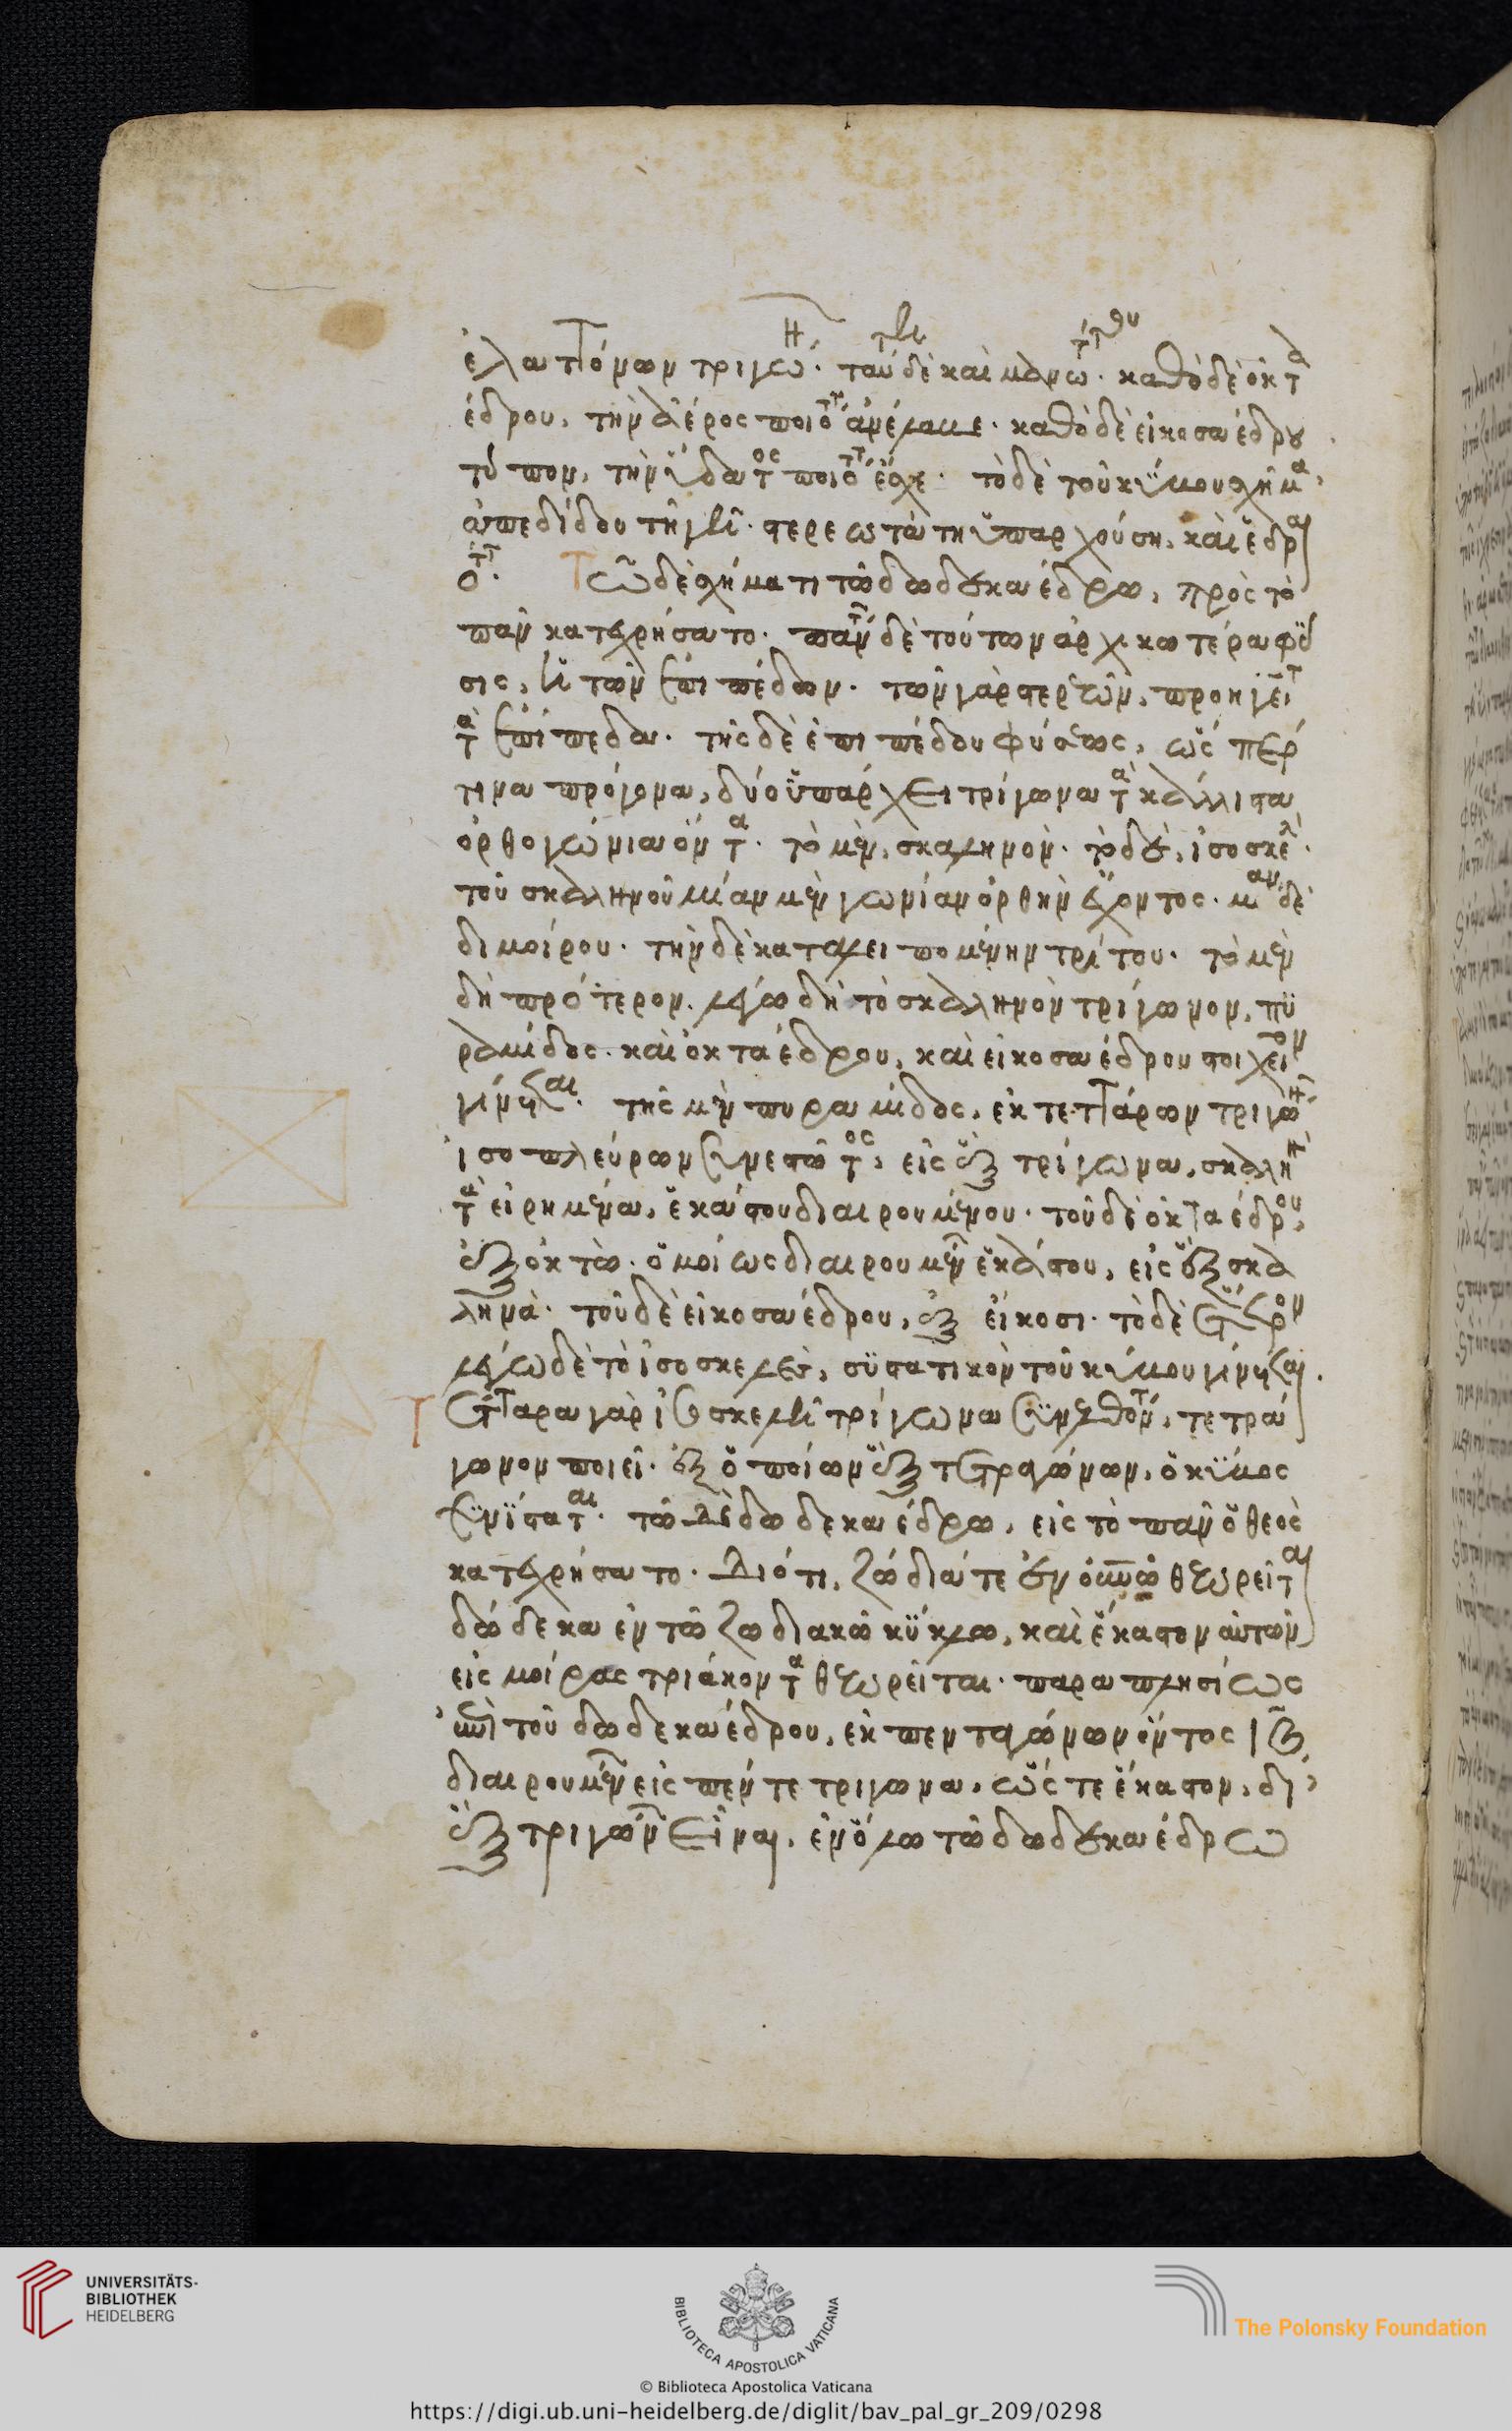 ἐλαττόνων τριγώνων· ταύτη δὲ καὶ μανωτάτου· καθὸ δὲ ὀκτα
έδρου, τὴν ἀέρος ποιότητα ἀνέλαβε· καθὸ δὲ εἰκοσαέδρου
τύπον, τὴν ὕδατος ποιότητα ἔσχε· τὸ δὲ τοῦ κύβου σχῆμα,
ἀπεδίδου τῆ γῆ· στερεωτάτη ὑπαρχούση, καὶ ἑδραι
οτάτη· Τῶ δὲ σχήματι τῶ δωδεκαέδρω, πρὸς τὸ
πᾶν κατεχρήσατο· πάντων δὲ τούτων ἀρχικωτέρα φύ
σις, ἡ τῶν ἐπιπέδων· τῶν γὰρ στερεῶν, προηγεῖται
τὰ ἐπίπεδα· τῆς δὲ ἐπιπέδου φύσεως, ὥσπερ
τινα πρόγονα, δύο ὑπάρχει τρίγωνα τὰ κάλλιστα
ὀρθογώνια ὄντα· τὸ μὲν, σκαληνὸν· τὸ δὲ, ἰσοσκελὲς·
τοῦ σκαληνοῦ μίαν μὲν γωνίαν ὀρθὴν ἔχοντος· μίαν δὲ
διμοίρου· τὴν δὲ καταλειπομένην τρίτου· τὸ μὲν
δὴ πρότερον. λέγω δὴ τὸ σκαληνὸν τρίγωνον, πυ
ραμίδος. καὶ ὀκταέδρου, καὶ εἰκοσαέδρου στοιχεῖον
γίνεται· τῆς μὲν πυραμίδος, ἐκ τεττάρων τριγώνων
ἰσοπλεύρων συνεστῶτος, εἰς ἓξ τρίγωνα, σκαληνὰ
τὰ εἰρημένα, ἑκάστου διαιρουμένου· τοῦ δὲ ὀκταέδρου,
ἐξ ὀκτὼ· ὁμοίως διαιρουμένων ἑκάστου, εἰς ἓξ σκα
ληνὰ· τοῦ δὲ εἰκοσαέδρου, ἐξ εἴκοσι· τὸ δὲ ἕτερον
λέγω δὲ τὸ ἰσοσκελὲς, συστατικὸν τοῦ κύβου γίνεται.
Τέτταρα γὰρ ἰσοσκελῆ τρίγωνα συνελθόντα, τετρά
γωνον ποιεῖ· ἐξ ὁποίων ἓξ τετραγώνων, ὁ κύβος
συνίσταται· τῶ δὲ δωδεκαέδρω, εἰς τὸ πᾶν ὁ θεὸς
κατεχρήσατο· Διότι, ζώδια τε ἐν οὐρανῶ θεωρεῖται
δώδεκα ἐν τῶ ζωδιακῶ κύκλω, καὶ ἕκαστον αὐτῶν
εἰς μοίρας τριάκοντα θεωρεῖται· παραπλησίως
ἐπὶ τοῦ δωδεκαέδρου, ἐκ πενταγώνων ὄντος ιβ
διαιρουμένων εἰς πέντε τρίγωνα, ὥστε ἕκαστον, δι'
ἓξ τριγώνων εἶναι, ἐν ὅλω τῶ δωδεκαέδρω
UNIVERSITÄTS-
BIBLIOTHEK
HEIDELBERG
BIBLIOTECA APOSTOLICA VATICANA
The Polonsky Foundation
© Biblioteca Apostolica Vaticana
https://digi.ub.uni-heidelberg.de/diglit/bav_pal_gr_209/0298